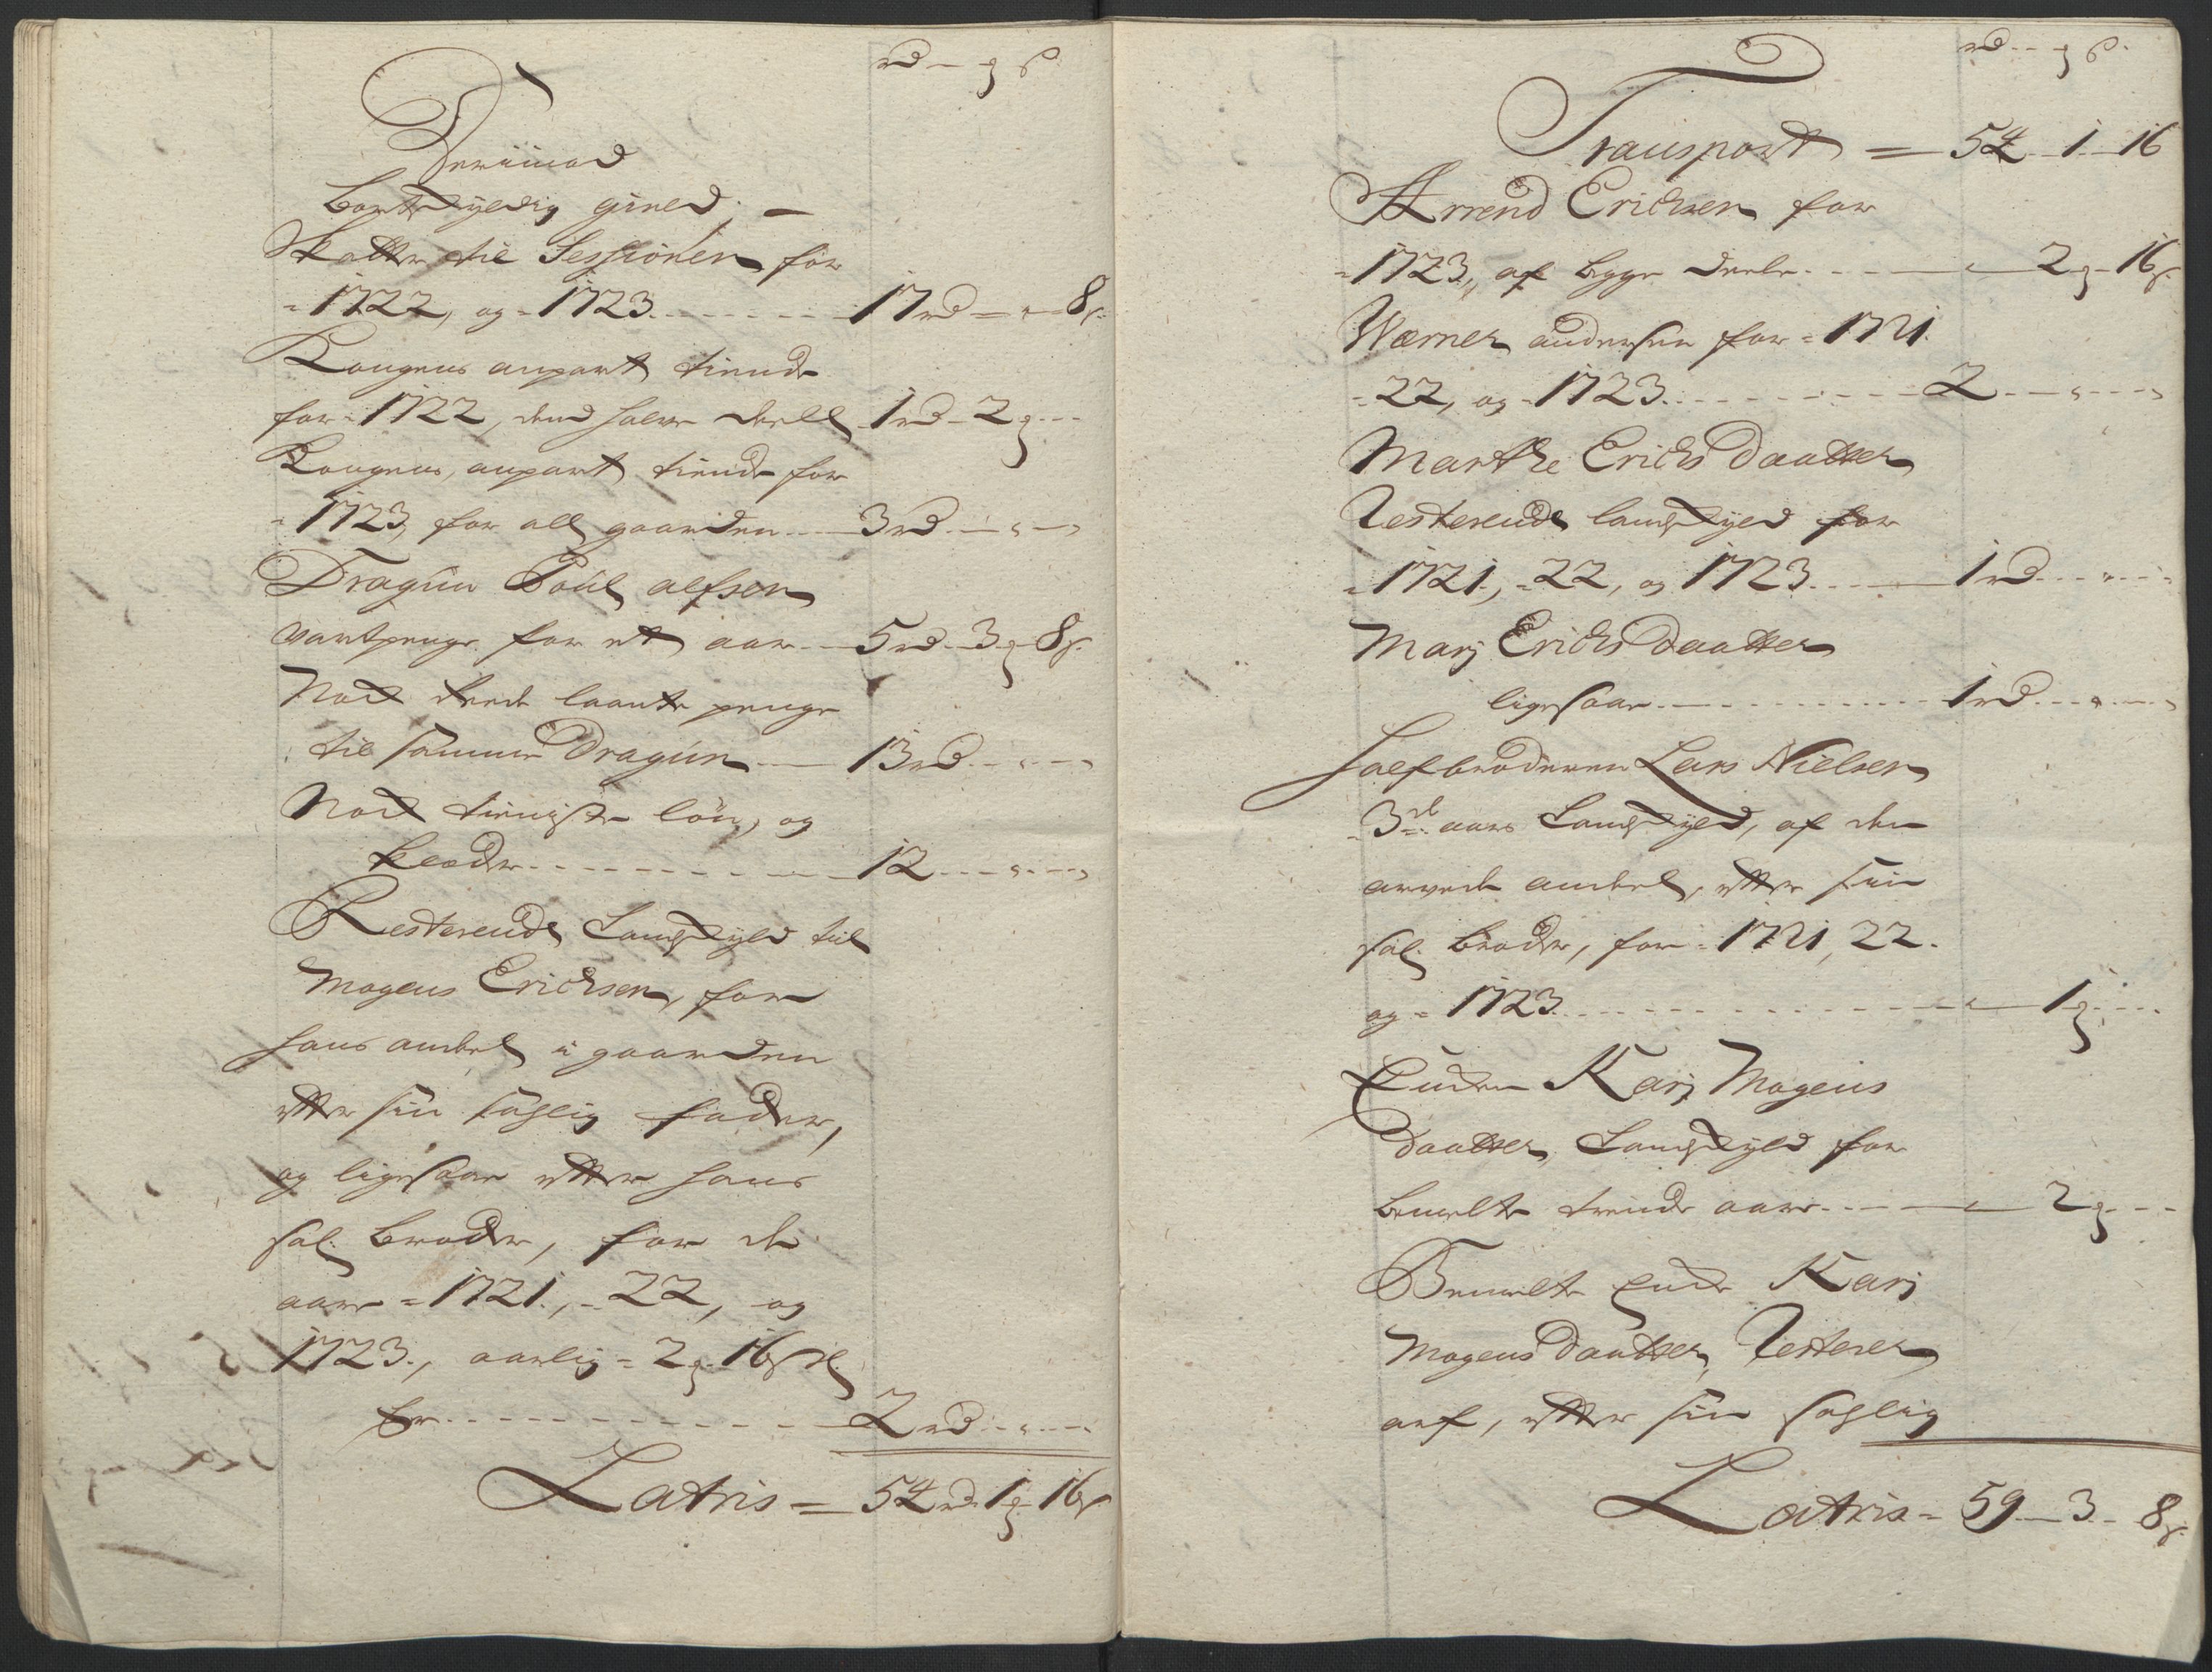 rd — ȝ ß
Derimod
bortskyldig gield; —
Skatter til Sessionen for
1722, og 1723 17 rd — „ — 8 ß
Kongens anpart tiende
for 1722, dend halve deell 1 rd — 2 ȝ
Kongens anpart tiende for
1723, for all gaarden 3 rd — „ — „
Dragun Poul alfsøn
vartpenge for et aar 5 rd — 3 ȝ 8 ß
Nock laante penge
til samme Dragun 13 rd — „ — „
Nock tieniste løn, og
klæder 12 — „ — „
Resterende Landskyld til
Mogens Erichsen, for
hans andel i gaarden
efter sin sahlig fader,
og ligesaa efter hans
sal. broder, for de
aar 1721, 22, og
1723, aarlig 2 ȝ 16 ß er
2 rd — „ — „
Latris = 54 rd 1 ȝ 16 ß
rd — ȝ ß
Transport = 54 — 1 — 16
Arrend Erichsen for
1723, af begge deele — 2 ȝ 16 ß
Werner andersen for 1721.
22, og 1723 2 — „ — „
Marthe Erichs Daatter
Resterende landskyld for
1721, 22, og 1723 1 rd — „ — „
Marj Erichs Daatter
ligesaa 1 rd — „ — „
Halfbroderen Lars Nielsen
3de aars Landskyld, af den
arvede andeel, efter sin
sal. broder, for 1721, 22.
og 1723 — 1 ȝ —
Enken Karj Mogens
Daatter, Landskyld for
bemelte trende aar — 2 ȝ —
Bemelte Enke Karj
Mogens Daatter, Resterer
arf, efter sin sahlig
Latris = 59 — 3 — 8 ß